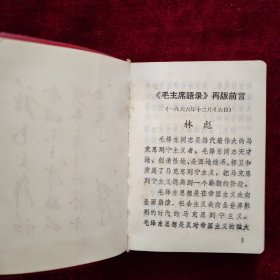 《毛主席語录》再版前言
(一九六六年十二月十六日)
林彪
毛泽东同志是当代最伟大的马
克思列宁主义者。毛泽东同志天才
地、创造性地、全面地继承、捍卫和
发展了马克思列宁主义，把马克思
列宁主义提高到一个崭新的阶段。
毛泽东思想是在帝国主义走向
全面崩溃，社会主义走向全世界胜
利的时代的马克思列宁主义。毛
泽东思想是反对帝国主义的强大
1